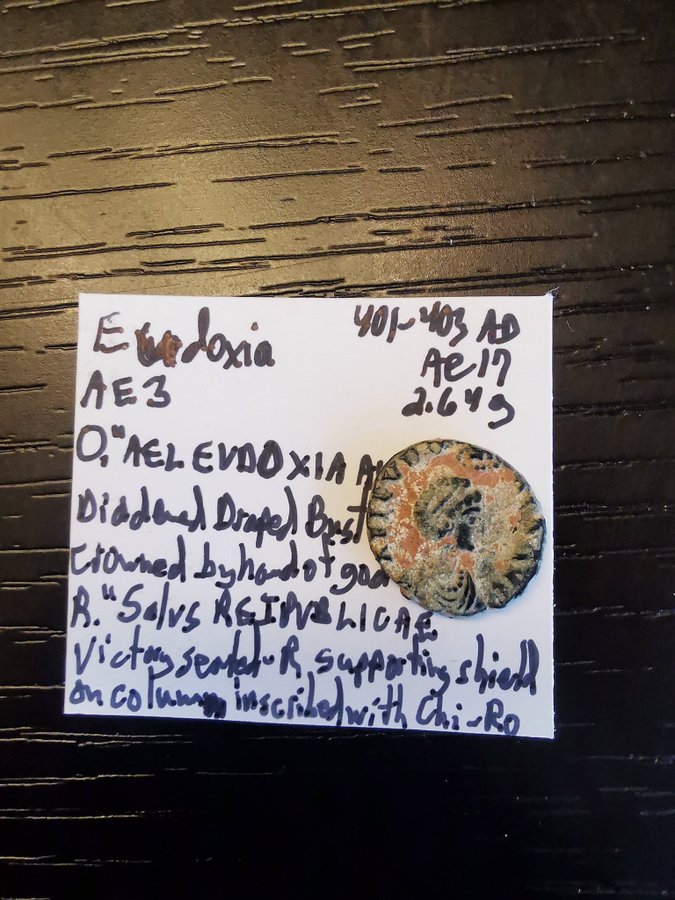 Eudoxia
401-403 AD
AE3
AE17
2.64g
O. "AEL EVDOXIA
Diademed Draped Bust
Crowned by hand of god
R. "Salus REIPVBLICAE
Victory seated R supporting shield
on column inscribed with Chi-Ro